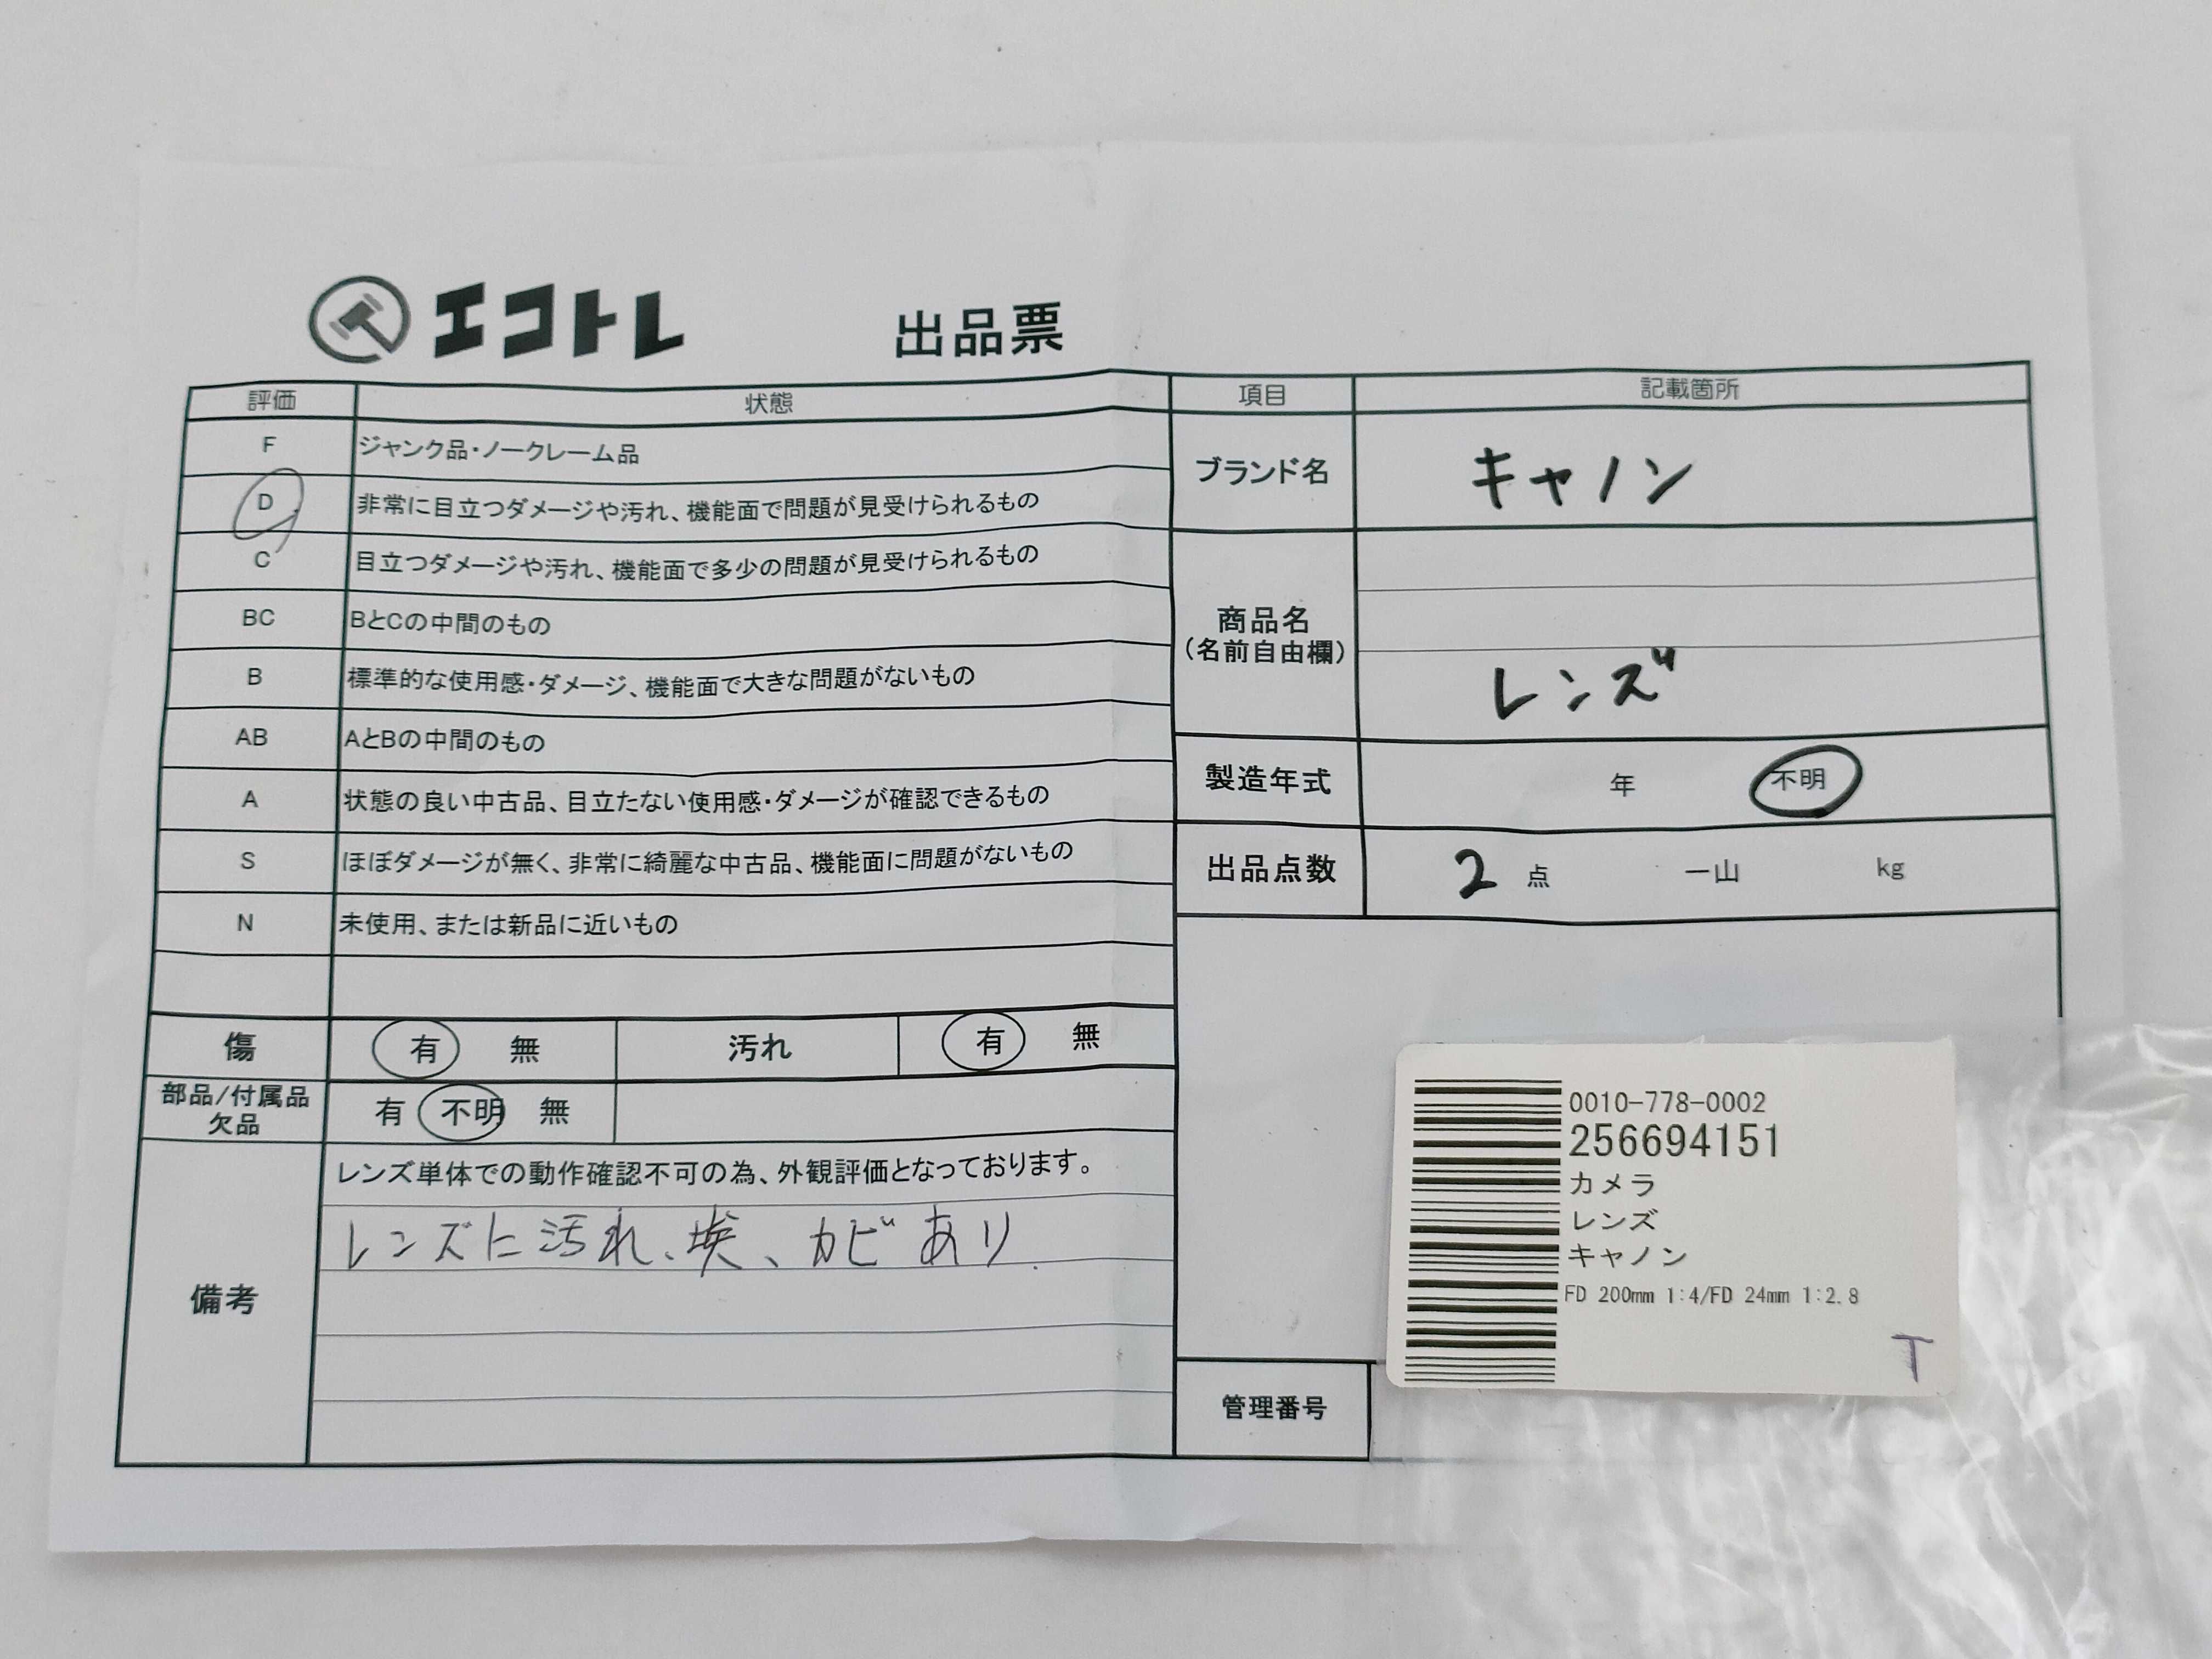 エコトレ 出品票
評価 状態
F ジャンク品・ノークレーム品
D 非常に目立つダメージや汚れ、機能面で問題が見受けられるもの
C 目立つダメージや汚れ、機能面で多少の問題が見受けられるもの
BC BとCの中間のもの
B 標準的な使用感・ダメージ、機能面で大きな問題がないもの
AB AとBの中間のもの
A 状態の良い中古品、目立たない使用感・ダメージが確認できるもの
S ほぼダメージが無く、非常に綺麗な中古品、機能面に問題がないもの
N 未使用、または新品に近いもの
傷 有 無 汚れ 有 無
部品/付属品
欠品
有 不明 無
備考
レンズ単体での動作確認不可の為、外観評価となっております。
レンズに汚れ、埃、カビあり.
項目 記載箇所
ブランド名 キャノン
商品名
(名前自由欄)
レンズ
製造年式 年 不明
出品点数 2 点 一山 kg
管理番号
0010-778-0002
256694151
カメラ
レンズ
キャノン
FD 200mm 1:4/FD 24mm 1:2.8
T